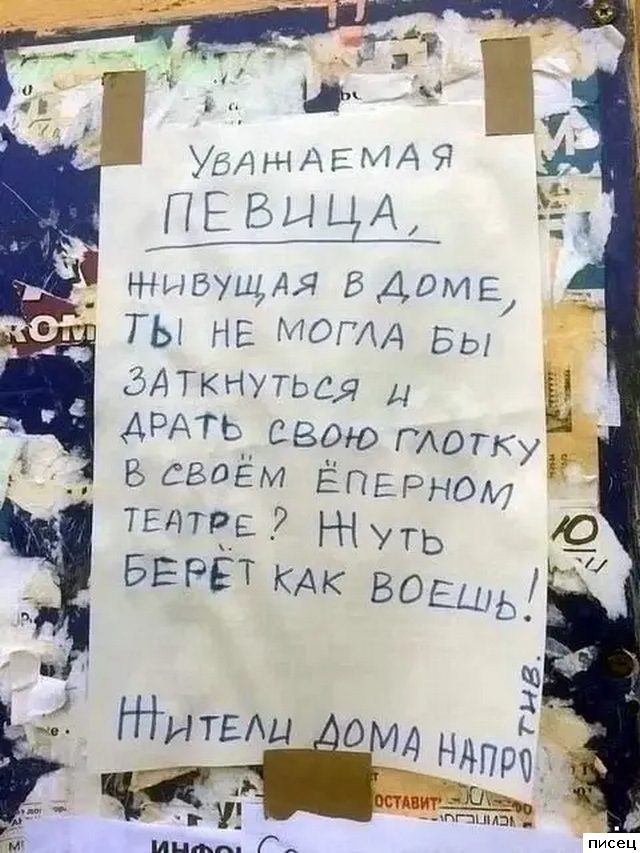 УВАЖАЕМАЯ
ПЕВИЦА,
ЖИВУЩАЯ В ДОМЕ,
ТЫ НЕ МОГЛА БЫ
ЗАТКНУТЬСЯ И
ДРАТЬ СВОЮ ГЛОТКУ
В СВОЁМ ЁПЕРНОМ
ТЕАТРЕ? ЖУТЬ
БЕРЁТ КАК ВОЕШЬ!
ЖИТЕЛИ ДОМА НАПРОТИВ.
ОСТАВИТ
писец